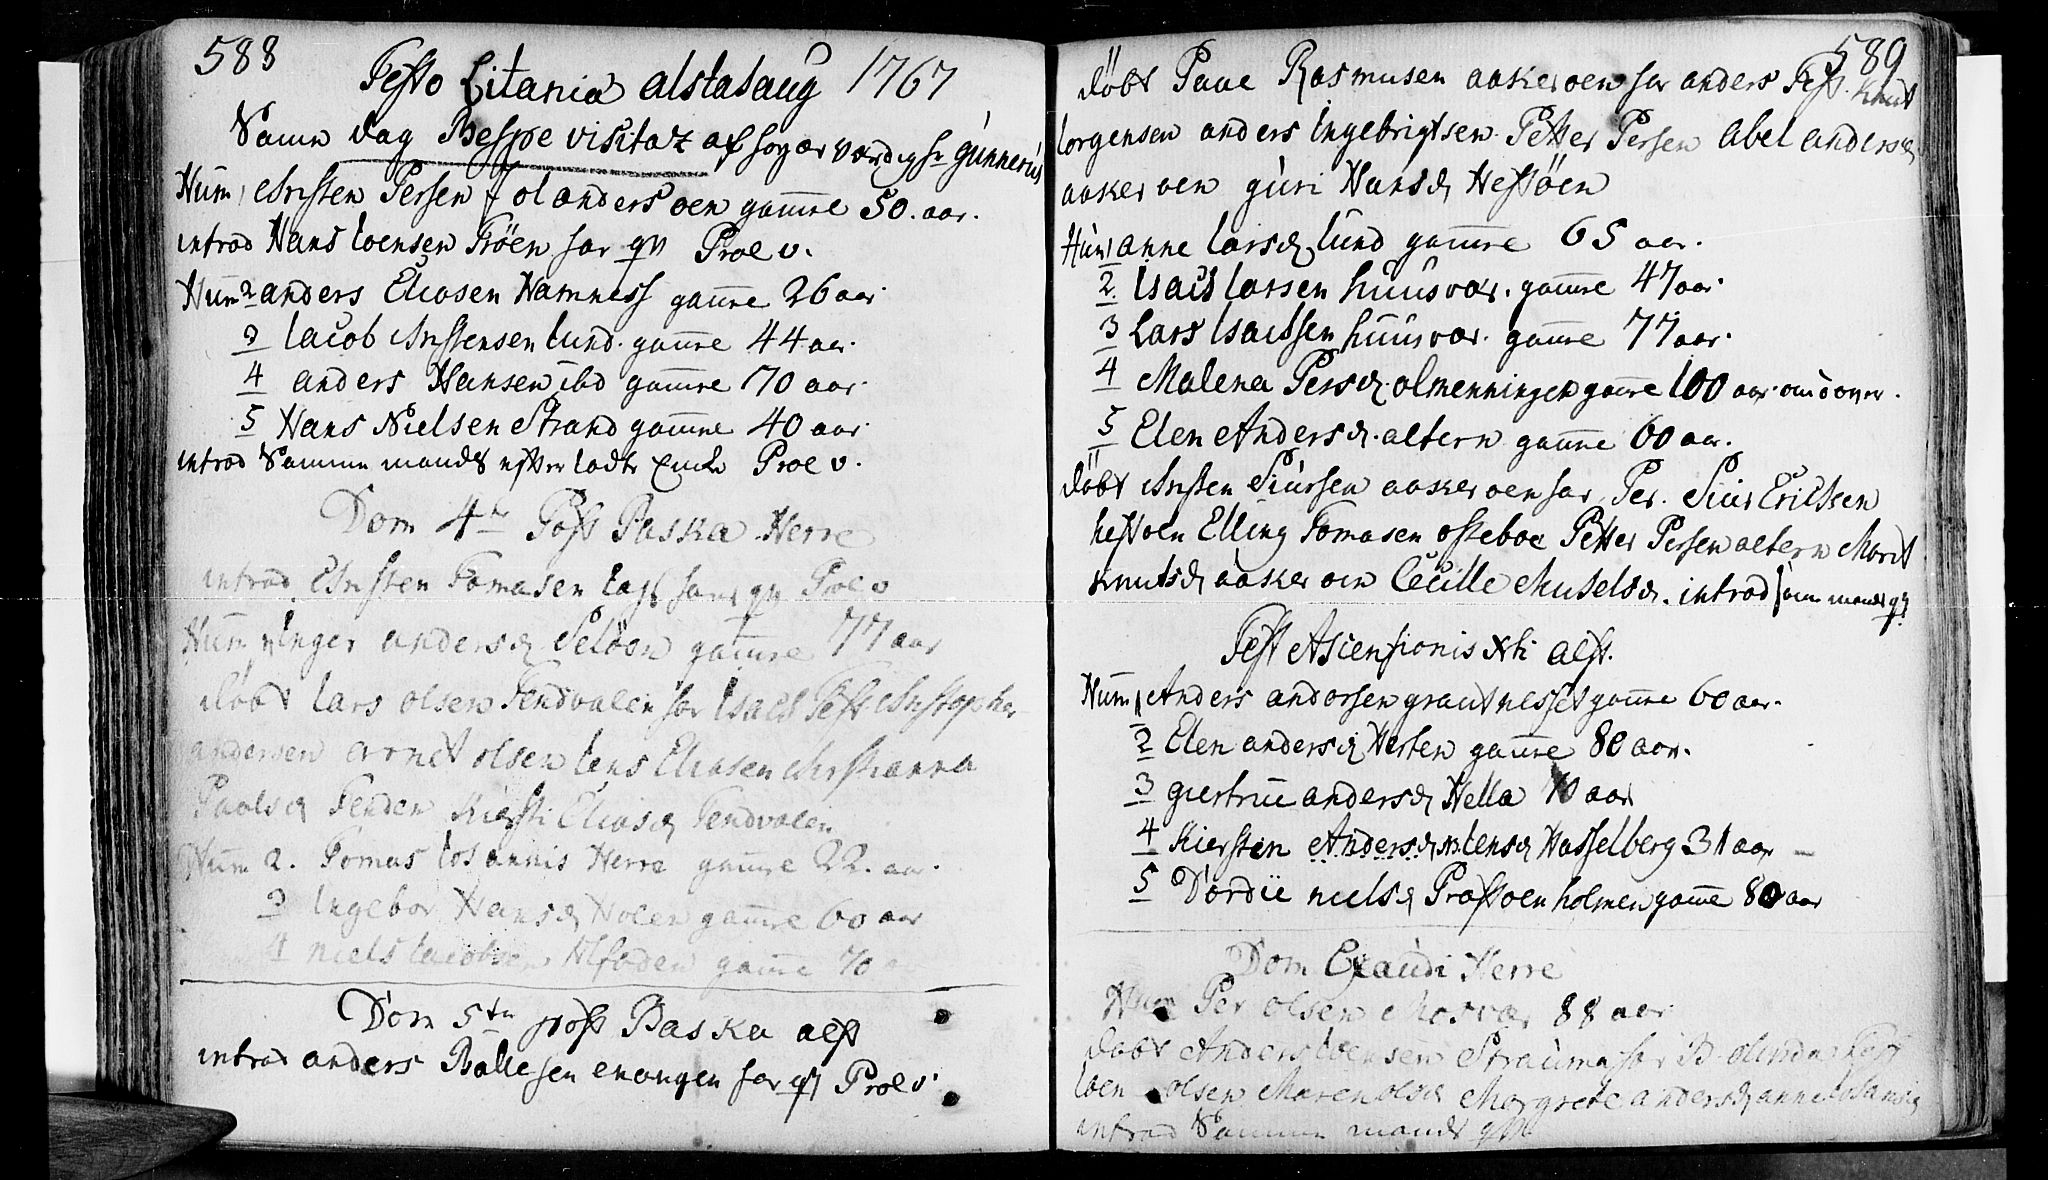 588
Festo Litania alstahaug 1767
Samme dag Bispe visitaz af høyær værdig hr gunnerus
Hum 1 Christen Persen folandersøen gamme 50. aar.
introd Hans Joensen Tröen har qv Prol v.
Hum 2 anders Eliasen Hamness gamme 26 aar
3 Jacob Christensen lund. gamme 44 aar.
4 anders Hansen ibd gamme 70 aar.
5 Hans Nielsen Strand gamme 40 aar.
introd Samme mands efterladte Encke Prol v.
Dom 4te Post Paska Herre
introd Christen Tomasen qv Prol v
Hum 1 Inger andersd Selöen gamme 77 aar
döbt Lars olsen Tendvalen har Isach Test Christopher
andersen arnt olsen Jens Eliasen Christianna
Paalsd Fenden Kirsti Eliasd Tendvalen
Hum 2. Tomas Johannis Herre gamme 22. aar.
3 Ingebor Hansd Holen gamme 60 aar
4 niels Jacobsen gamme 70
Dom 5te post Baska alst
introd anders Rollesen enangen har qv Prol v.
589
döbt Paue Rasmusen aakerøen har anders Test. Knut
Jorgensen anders Ingebrigtsen Petter Persen abel andersd
aakerøen guri Hansd Hestöen
Hum 1 anne larsd lund gamme 65 aar.
2. Isach larsen huusvær. gamme 47 aar.
3 Lars Isachsen huusvær. gamme 77 aar.
4 Malena Persd. olmenningen gamme 100 aar. og over.
5 Elen Andersd. altern gamme 60 aar.
döbt Christen Siursen aakerøen har Per. Siur Ericksen
hestøen Elling Tomasen ostebøe Petter Persen altern Marit
Knutsd aakerøen Cecille Mickelsd. introd samme mands qv
Fest Ascensionis Xti alst.
Hum 1 Anders andorsen grautnesset gamme 60 aar.
2 Elen andersd Herten gamme 80 aar.
3 giertrue andersd Hella 70 aar
4 Kiersten Andersd Jensd Hasselberg 31 aar
5 Dordie nielsd Prestøen holmen gamme 80 aar
Dom Exaudi Herre
Hum Per olsen Mosvær 88 aar
döbt Anders Joensen Strauma har B. Test
Joen olsen Maren olsd Margrete andersd anne Johansd
introd Samme mands qv